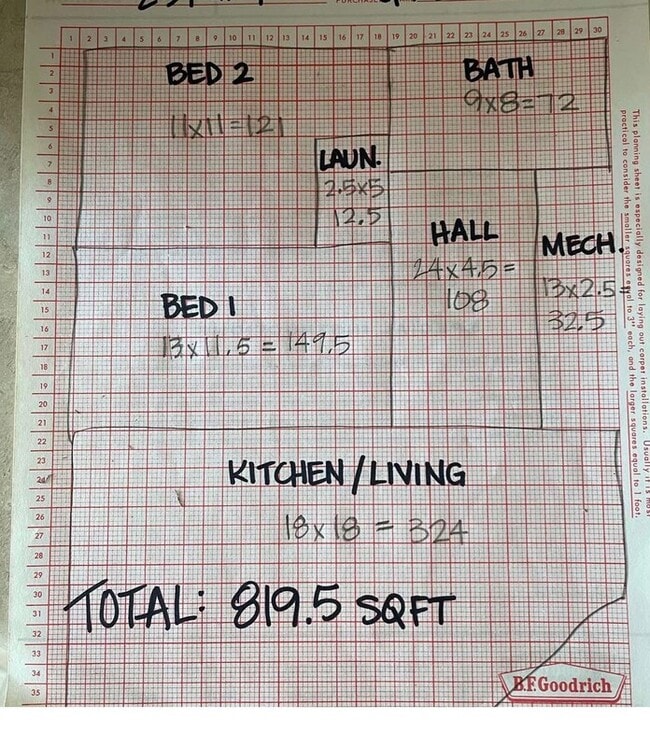 1 2 3 4 5 6 7 8 9 10 11 12 13 14 15 16 17 18 19 20 21 22 23 24 25 26 27 28 29 30
1
2
3
4
5
6
7
8
9
10
11
12
13
14
15
16
17
18
19
20
21
22
23
24
25
26
27
28
29
30
31
32
33
34
35
BED 2
11x11=121
BATH
9x8=72
LAUN.
2.5x5
12.5
HALL
24x4.5=
108
MECH.
13x2.5=
32.5
BED 1
13x11.5=149.5
KITCHEN/LIVING
18x18=324
TOTAL: 819.5 SQFT
B.F.Goodrich
This planning sheet is especially designed for laying out carpet installations. Usually it is most
practical to consider the smaller squares equal to 3" each, and the larger squares equal to 1 foot.